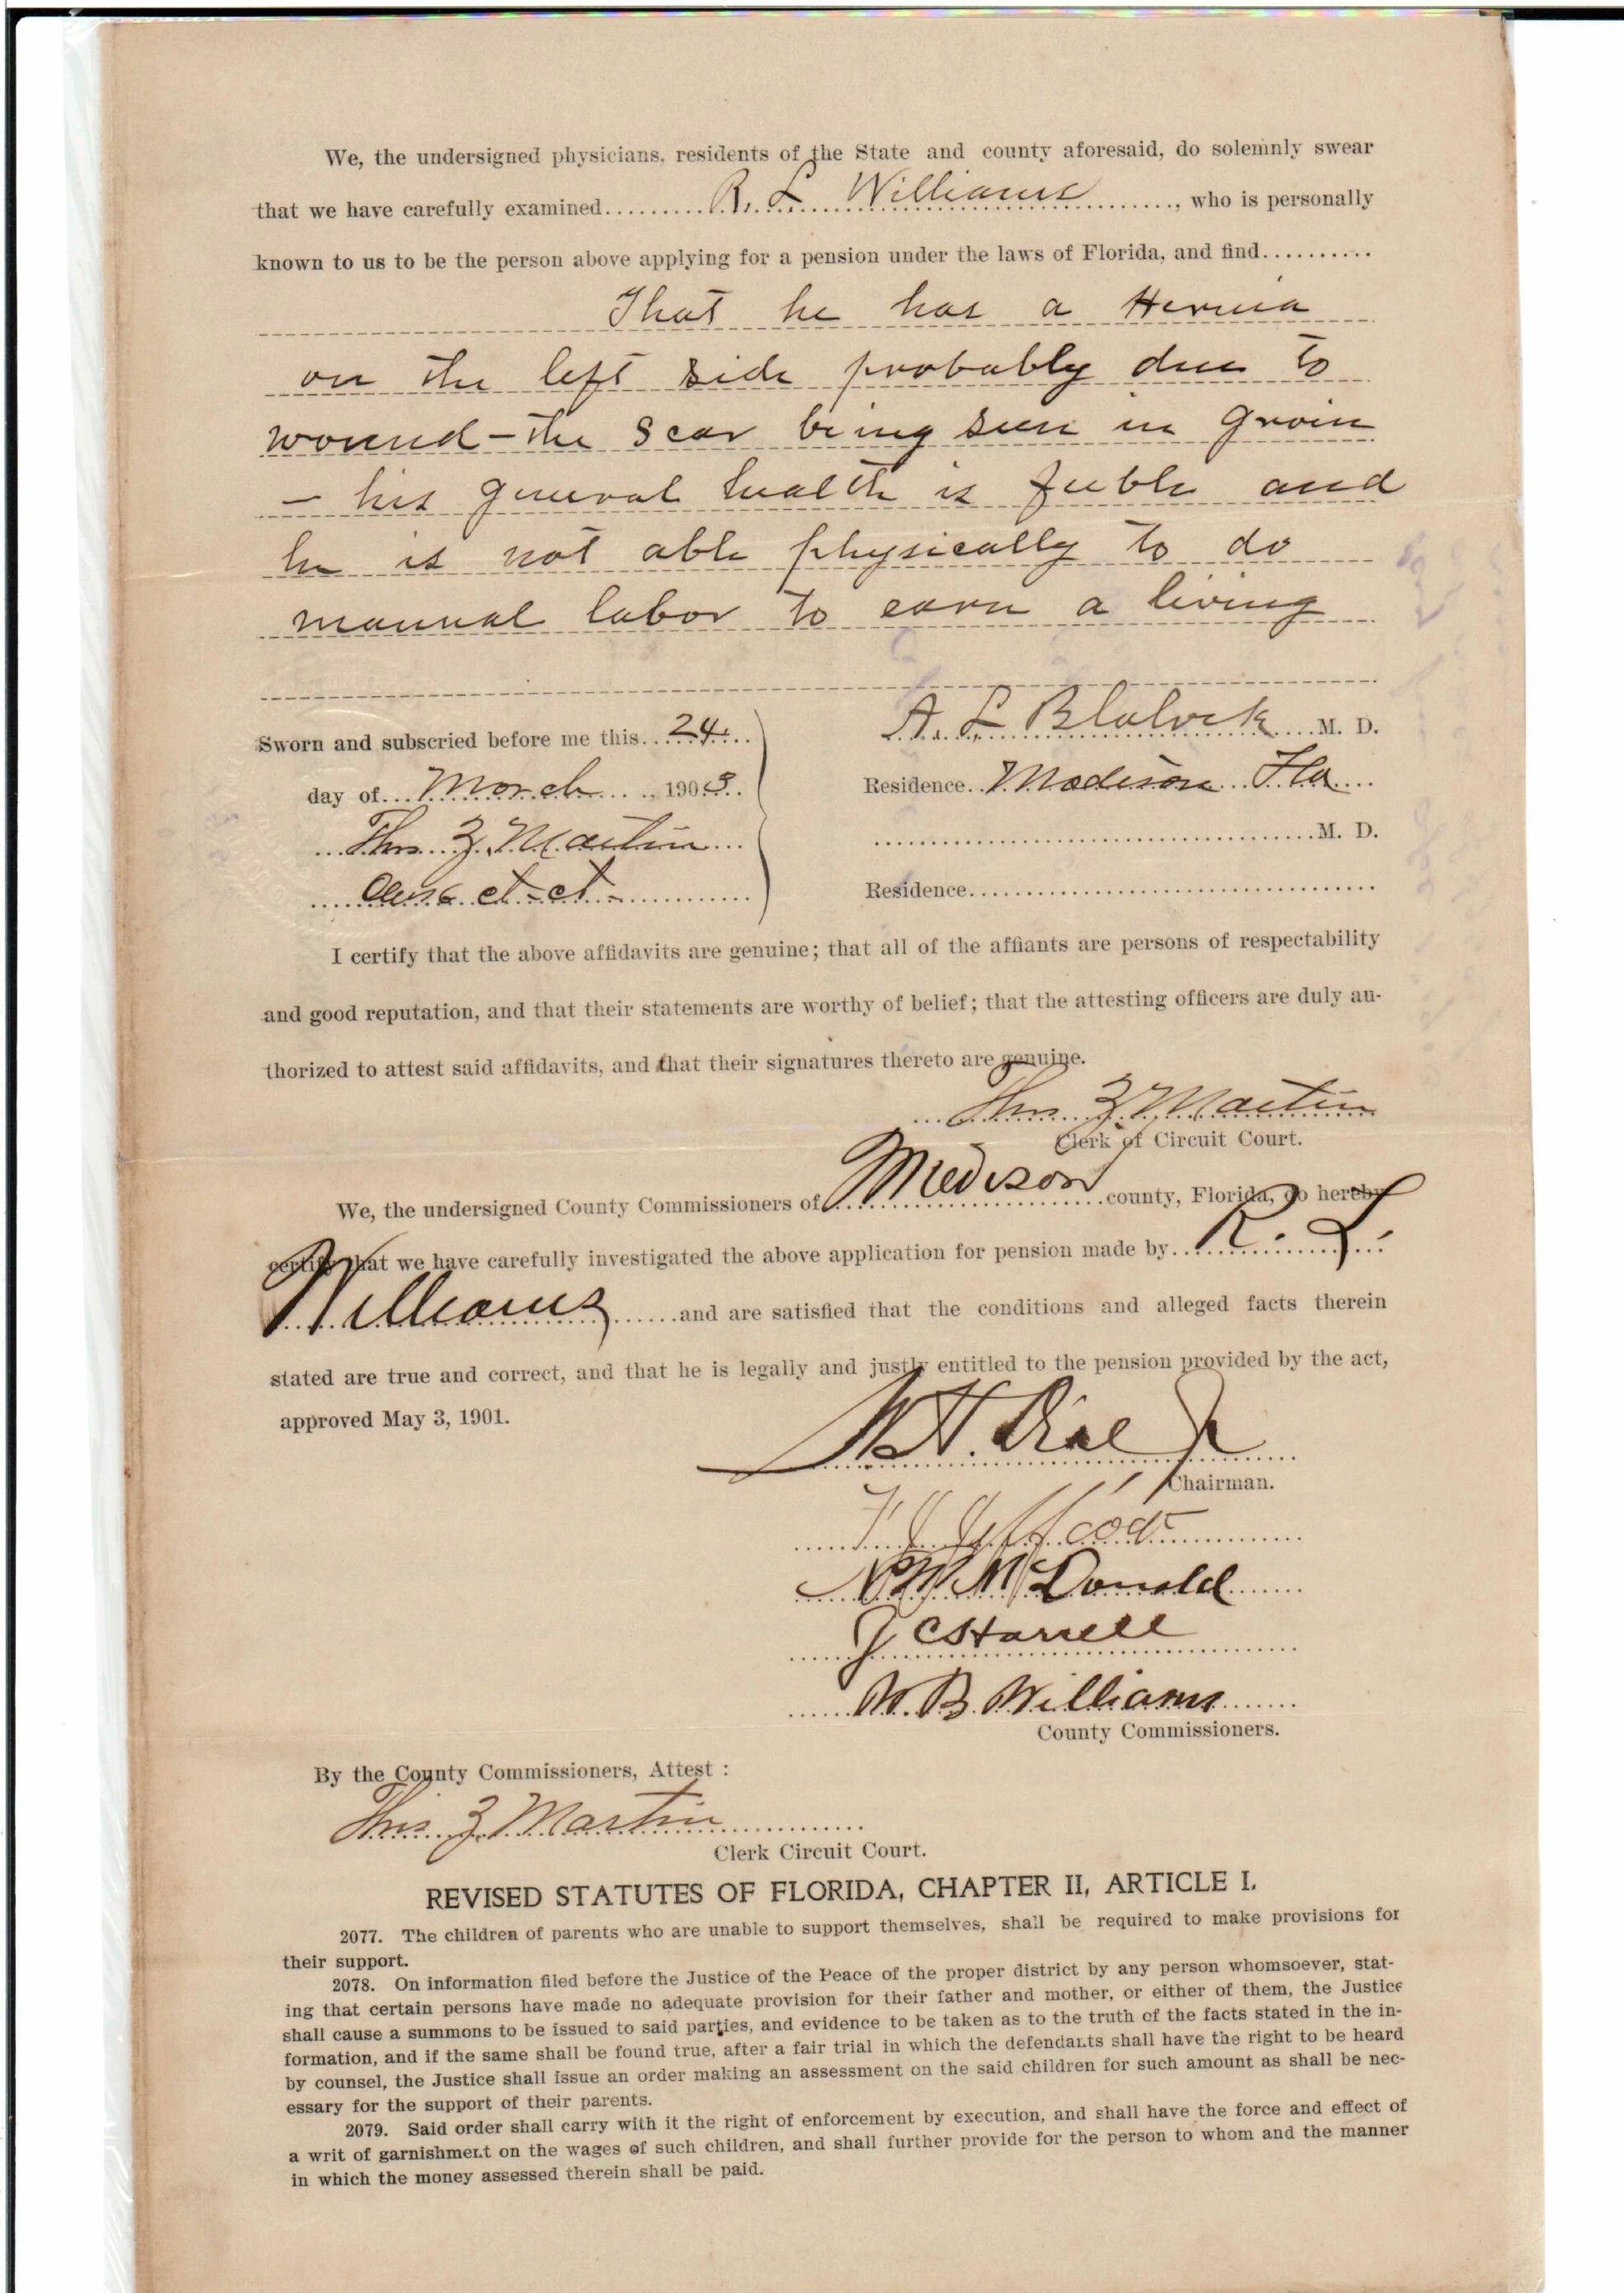 We, the undersigned physicians, residents of the State and county aforesaid, do solemnly swear
that we have carefully examined..........R. L. Williams.........., who is personally
known to us to be the person above applying for a pension under the laws of Florida, and find..........
That he has a Hernia
on the left side probably due to
wound - the scar being seen in groin
- his general health is feeble and
he is not able physically to do
manual labor to earn a living
Sworn and subscried before me this..24...
day of...March....., 1903..
Thos. Z. Martin
Clerk ct - ct -
A. L. Blalock....M. D.
Residence..Madison Fla....
....................M. D.
Residence....................
I certify that the above affidavits are genuine; that all of the affiants are persons of respectability
and good reputation, and that their statements are worthy of belief; that the attesting officers are duly au-
thorized to attest said affidavits, and that their signatures thereto are genuine.
Thos. Z. Martin
Clerk of Circuit Court.
We, the undersigned County Commissioners of Madison county, Florida, do hereby
certify that we have carefully investigated the above application for pension made by..R. L.
Williams.......and are satisfied that the conditions and alleged facts therein
stated are true and correct, and that he is legally and justly entitled to the pension provided by the act,
approved May 3, 1901.
W. H. Dial Jr
Chairman.
Jeffcoat
McDonald
J C Harrell
W. B. Williams
County Commissioners.
By the County Commissioners, Attest :
Thos. Z. Martin
Clerk Circuit Court.
REVISED STATUTES OF FLORIDA, CHAPTER II, ARTICLE I.
2077. The children of parents who are unable to support themselves, shall be required to make provisions for
their support.
2078. On information filed before the Justice of the Peace of the proper district by any person whomsoever, stat-
ing that certain persons have made no adequate provision for their father and mother, or either of them, the Justice
shall cause a summons to be issued to said parties, and evidence to be taken as to the truth of the facts stated in the in-
formation, and if the same shall be found true, after a fair trial in which the defendants shall have the right to be heard
by counsel, the Justice shall issue an order making an assessment on the said children for such amount as shall be nec-
essary for the support of their parents.
2079. Said order shall carry with it the right of enforcement by execution, and shall have the force and effect of
a writ of garnishment on the wages of such children, and shall further provide for the person to whom and the manner
in which the money assessed therein shall be paid.